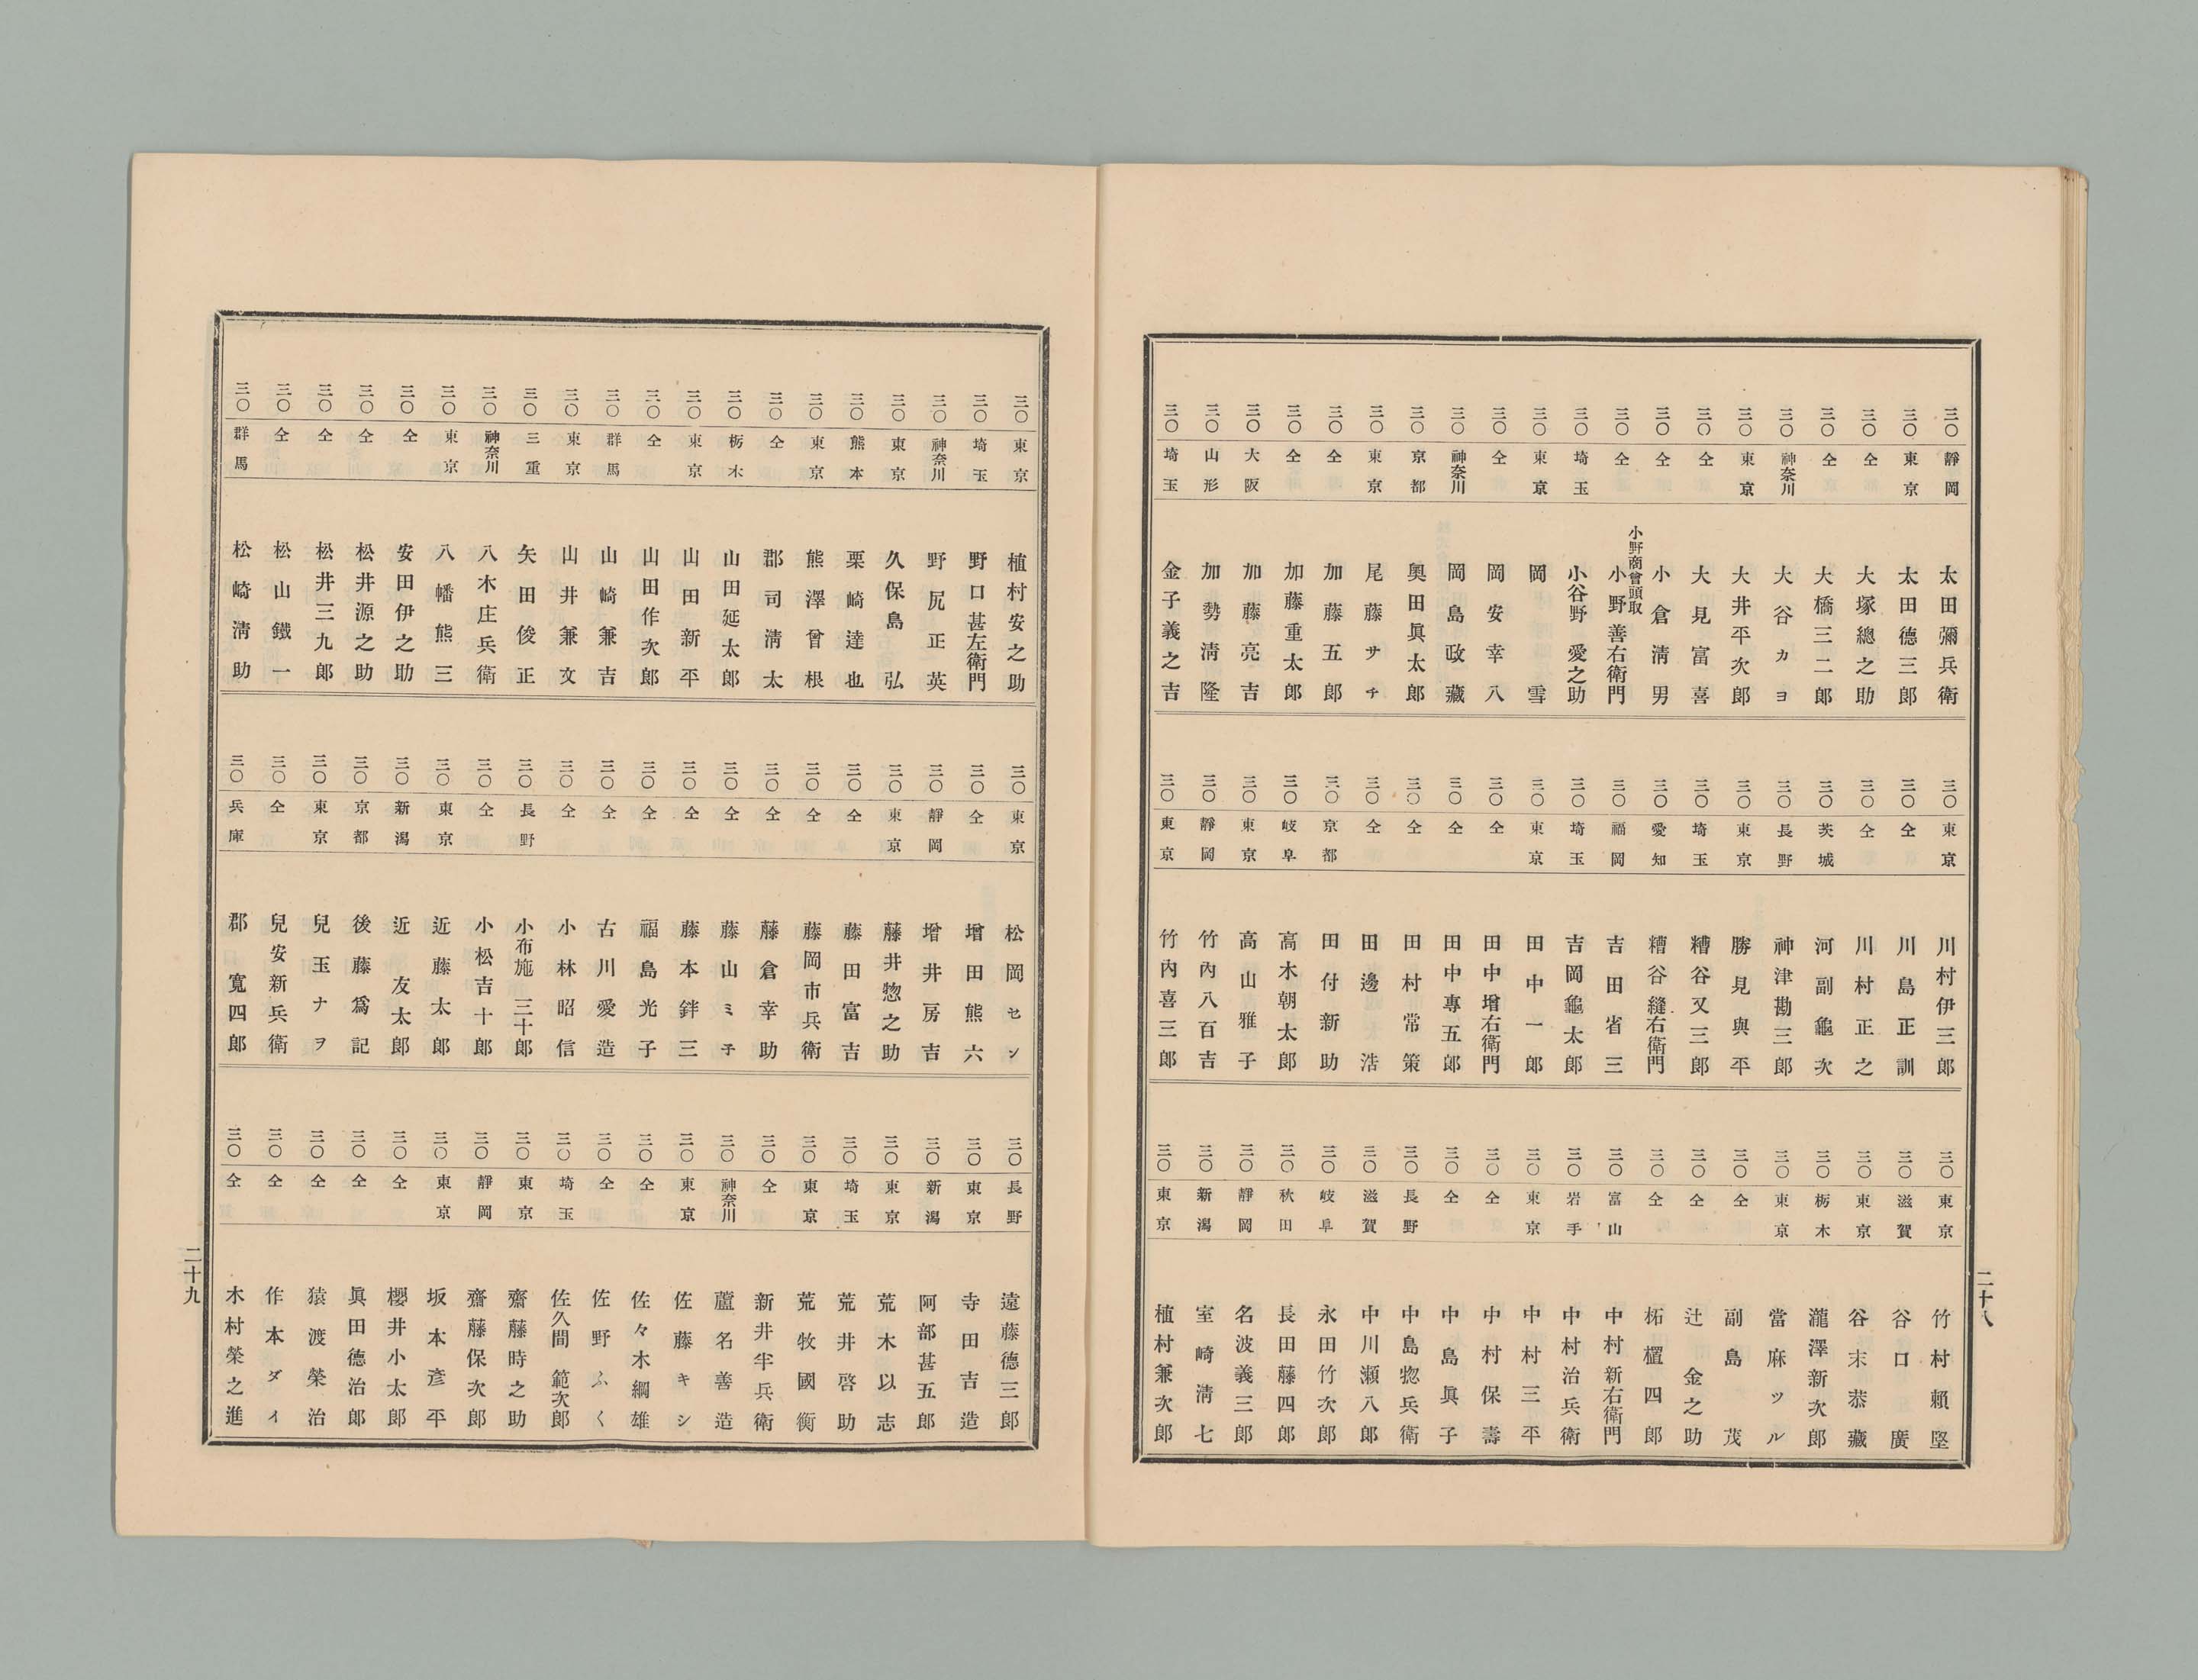 三〇 靜岡 太田彌兵衛
三〇 東京 太田德三郎
三〇 仝 大塚總之助
三〇 仝 大橋三二郎
三〇 神奈川 大谷カヨ
三〇 東京 大井平次郎
三〇 仝 大見富喜
三〇 仝 小倉淸男
三〇 仝 小野商會頭取 小野善右衛門
三〇 埼玉 小谷野愛之助
三〇 東京 岡雪
三〇 仝 岡安幸八
三〇 神奈川 岡島政藏
三〇 京都 奧田眞太郎
三〇 東京 尾藤サチ
三〇 仝 加藤五郎
三〇 仝 加藤重太郎
三〇 大阪 加藤亮吉
三〇 山形 加勢淸隆
三〇 埼玉 金子義之吉
三〇 東京 川村伊三郎
三〇 仝 川島正訓
三〇 仝 川村正之
三〇 茨城 河副龜次
三〇 長野 神津勘三郎
三〇 東京 勝見與平
三〇 埼玉 糟谷又三郎
三〇 愛知 糟谷縫右衛門
三〇 福岡 吉田省三
三〇 埼玉 吉岡龜太郎
三〇 東京 田中一郎
三〇 仝 田中增右衛門
三〇 仝 田中專五郎
三〇 仝 田村常策
三〇 仝 田邊浩
三〇 京都 田付新助
三〇 岐阜 高木朝太郎
三〇 東京 高山雅子
三〇 靜岡 竹內八百吉
三〇 東京 竹內喜三郎
三〇 東京 竹村賴堅
三〇 滋賀 谷口廣
三〇 東京 谷末恭藏
三〇 栃木 瀧澤新次郎
三〇 東京 當麻ツル
三〇 仝 副島茂
三〇 仝 辻金之助
三〇 仝 柘櫃四郎
三〇 富山 中村新右衛門
三〇 岩手 中村治兵衛
三〇 東京 中村三平
三〇 仝 中村保壽
三〇 仝 中島眞子
三〇 長野 中島惣兵衛
三〇 滋賀 中川瀨八郎
三〇 岐阜 永田竹次郎
三〇 秋田 長田藤四郎
三〇 靜岡 名波義三郎
三〇 新潟 室崎淸七
三〇 東京 植村兼次郎
二十八
三〇 東京 植村安之助
三〇 埼玉 野口甚左衛門
三〇 神奈川 野尻正英
三〇 東京 久保島弘
三〇 熊本 栗崎達也
三〇 東京 熊澤曾根
三〇 仝 郡司淸太
三〇 栃木 山田延太郎
三〇 東京 山田新平
三〇 仝 山田作次郎
三〇 群馬 山崎兼吉
三〇 東京 山井兼文
三〇 三重 矢田俊正
三〇 神奈川 八木庄兵衛
三〇 東京 八幡熊三
三〇 仝 安田伊之助
三〇 仝 松井源之助
三〇 仝 松井三九郎
三〇 仝 松山鐵一
三〇 群馬 松崎淸助
三〇 東京 松岡セン
三〇 仝 增田熊六
三〇 靜岡 增井房吉
三〇 東京 藤井惣之助
三〇 仝 藤田富吉
三〇 仝 藤岡市兵衛
三〇 仝 藤倉幸助
三〇 仝 藤山ミチ
三〇 仝 藤本鉡三
三〇 仝 福島光子
三〇 仝 古川愛造
三〇 仝 小林昭信
三〇 長野 小布施三十郎
三〇 仝 小松吉十郎
三〇 東京 近藤太郎
三〇 新潟 近友太郎
三〇 京都 後藤爲記
三〇 東京 兒玉ナヲ
三〇 仝 兒安新兵衛
三〇 兵庫 郡寬四郎
三〇 長野 遠藤德三郎
三〇 東京 寺田吉造
三〇 新潟 阿部甚五郎
三〇 東京 荒木以志
三〇 埼玉 荒井啓助
三〇 東京 荒牧國衡
三〇 仝 新井半兵衛
三〇 神奈川 蘆名善造
三〇 東京 佐藤キシ
三〇 仝 佐々木綱雄
三〇 仝 佐野ふく
三〇 埼玉 佐久間範次郎
三〇 東京 齋藤時之助
三〇 靜岡 齋藤保次郎
三〇 東京 坂本彥平
三〇 仝 櫻井小太郎
三〇 仝 眞田德治郎
三〇 仝 猿渡榮治
三〇 仝 作本ダイ
三〇 仝 木村榮之進
二十九